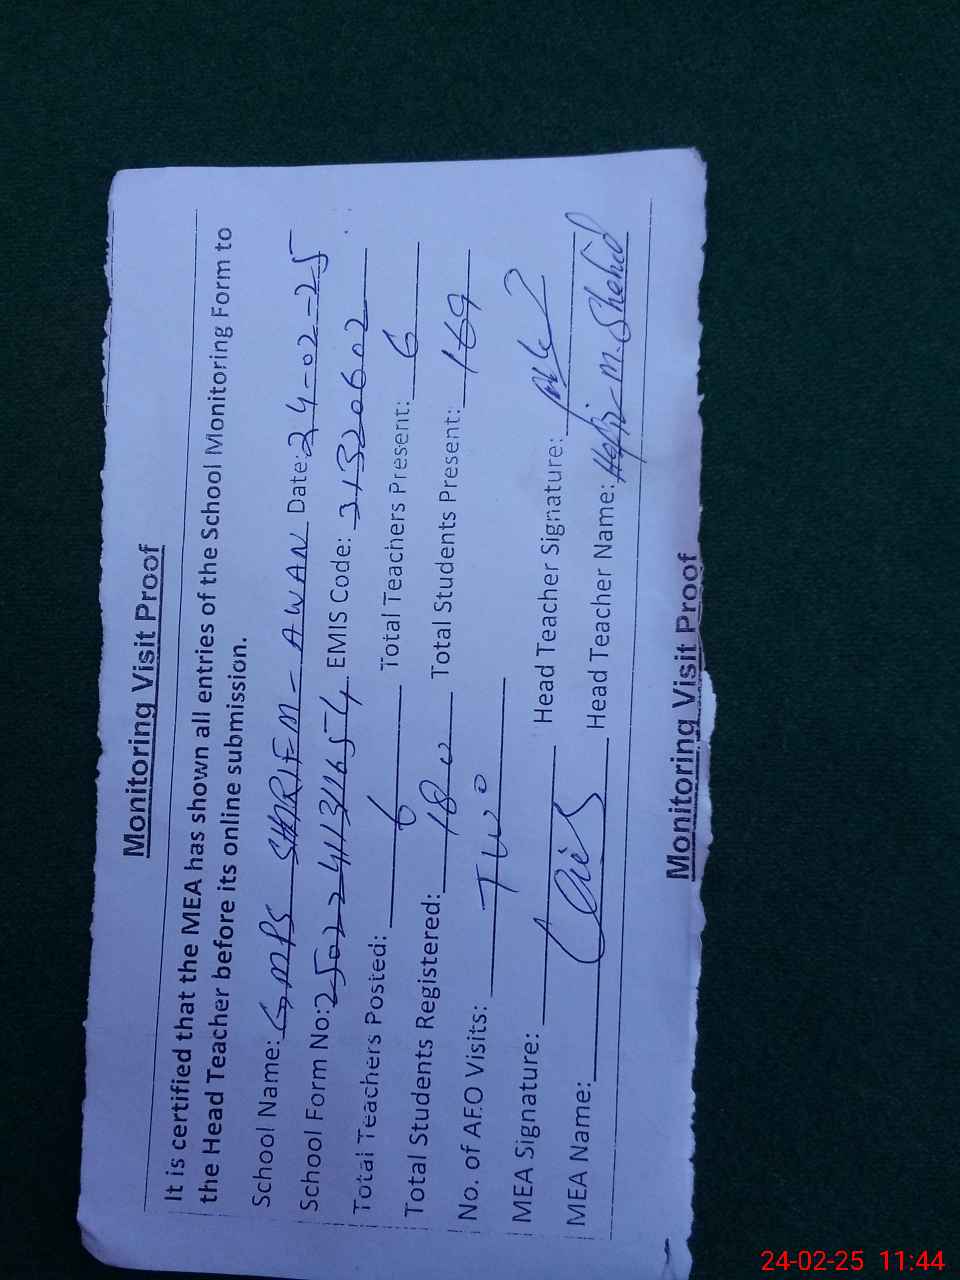 Monitoring Visit Proof
It is certified that the MEA has shown all entries of the School Monitoring Form to
the Head Teacher before its online submission.
School Name: GMPS SHARIFM - AWAN Date: 24-02-25
School Form No: EMIS Code: 31320602
Total Teachers Posted: 6 Total Teachers Present: 6
Total Students Registered: 180 Total Students Present: 169
No. of AEO Visits: Two
MEA Signature: Head Teacher Signature:
MEA Name: Head Teacher Name: M. Shahid
Monitoring Visit Proof
24-02-25 11:44